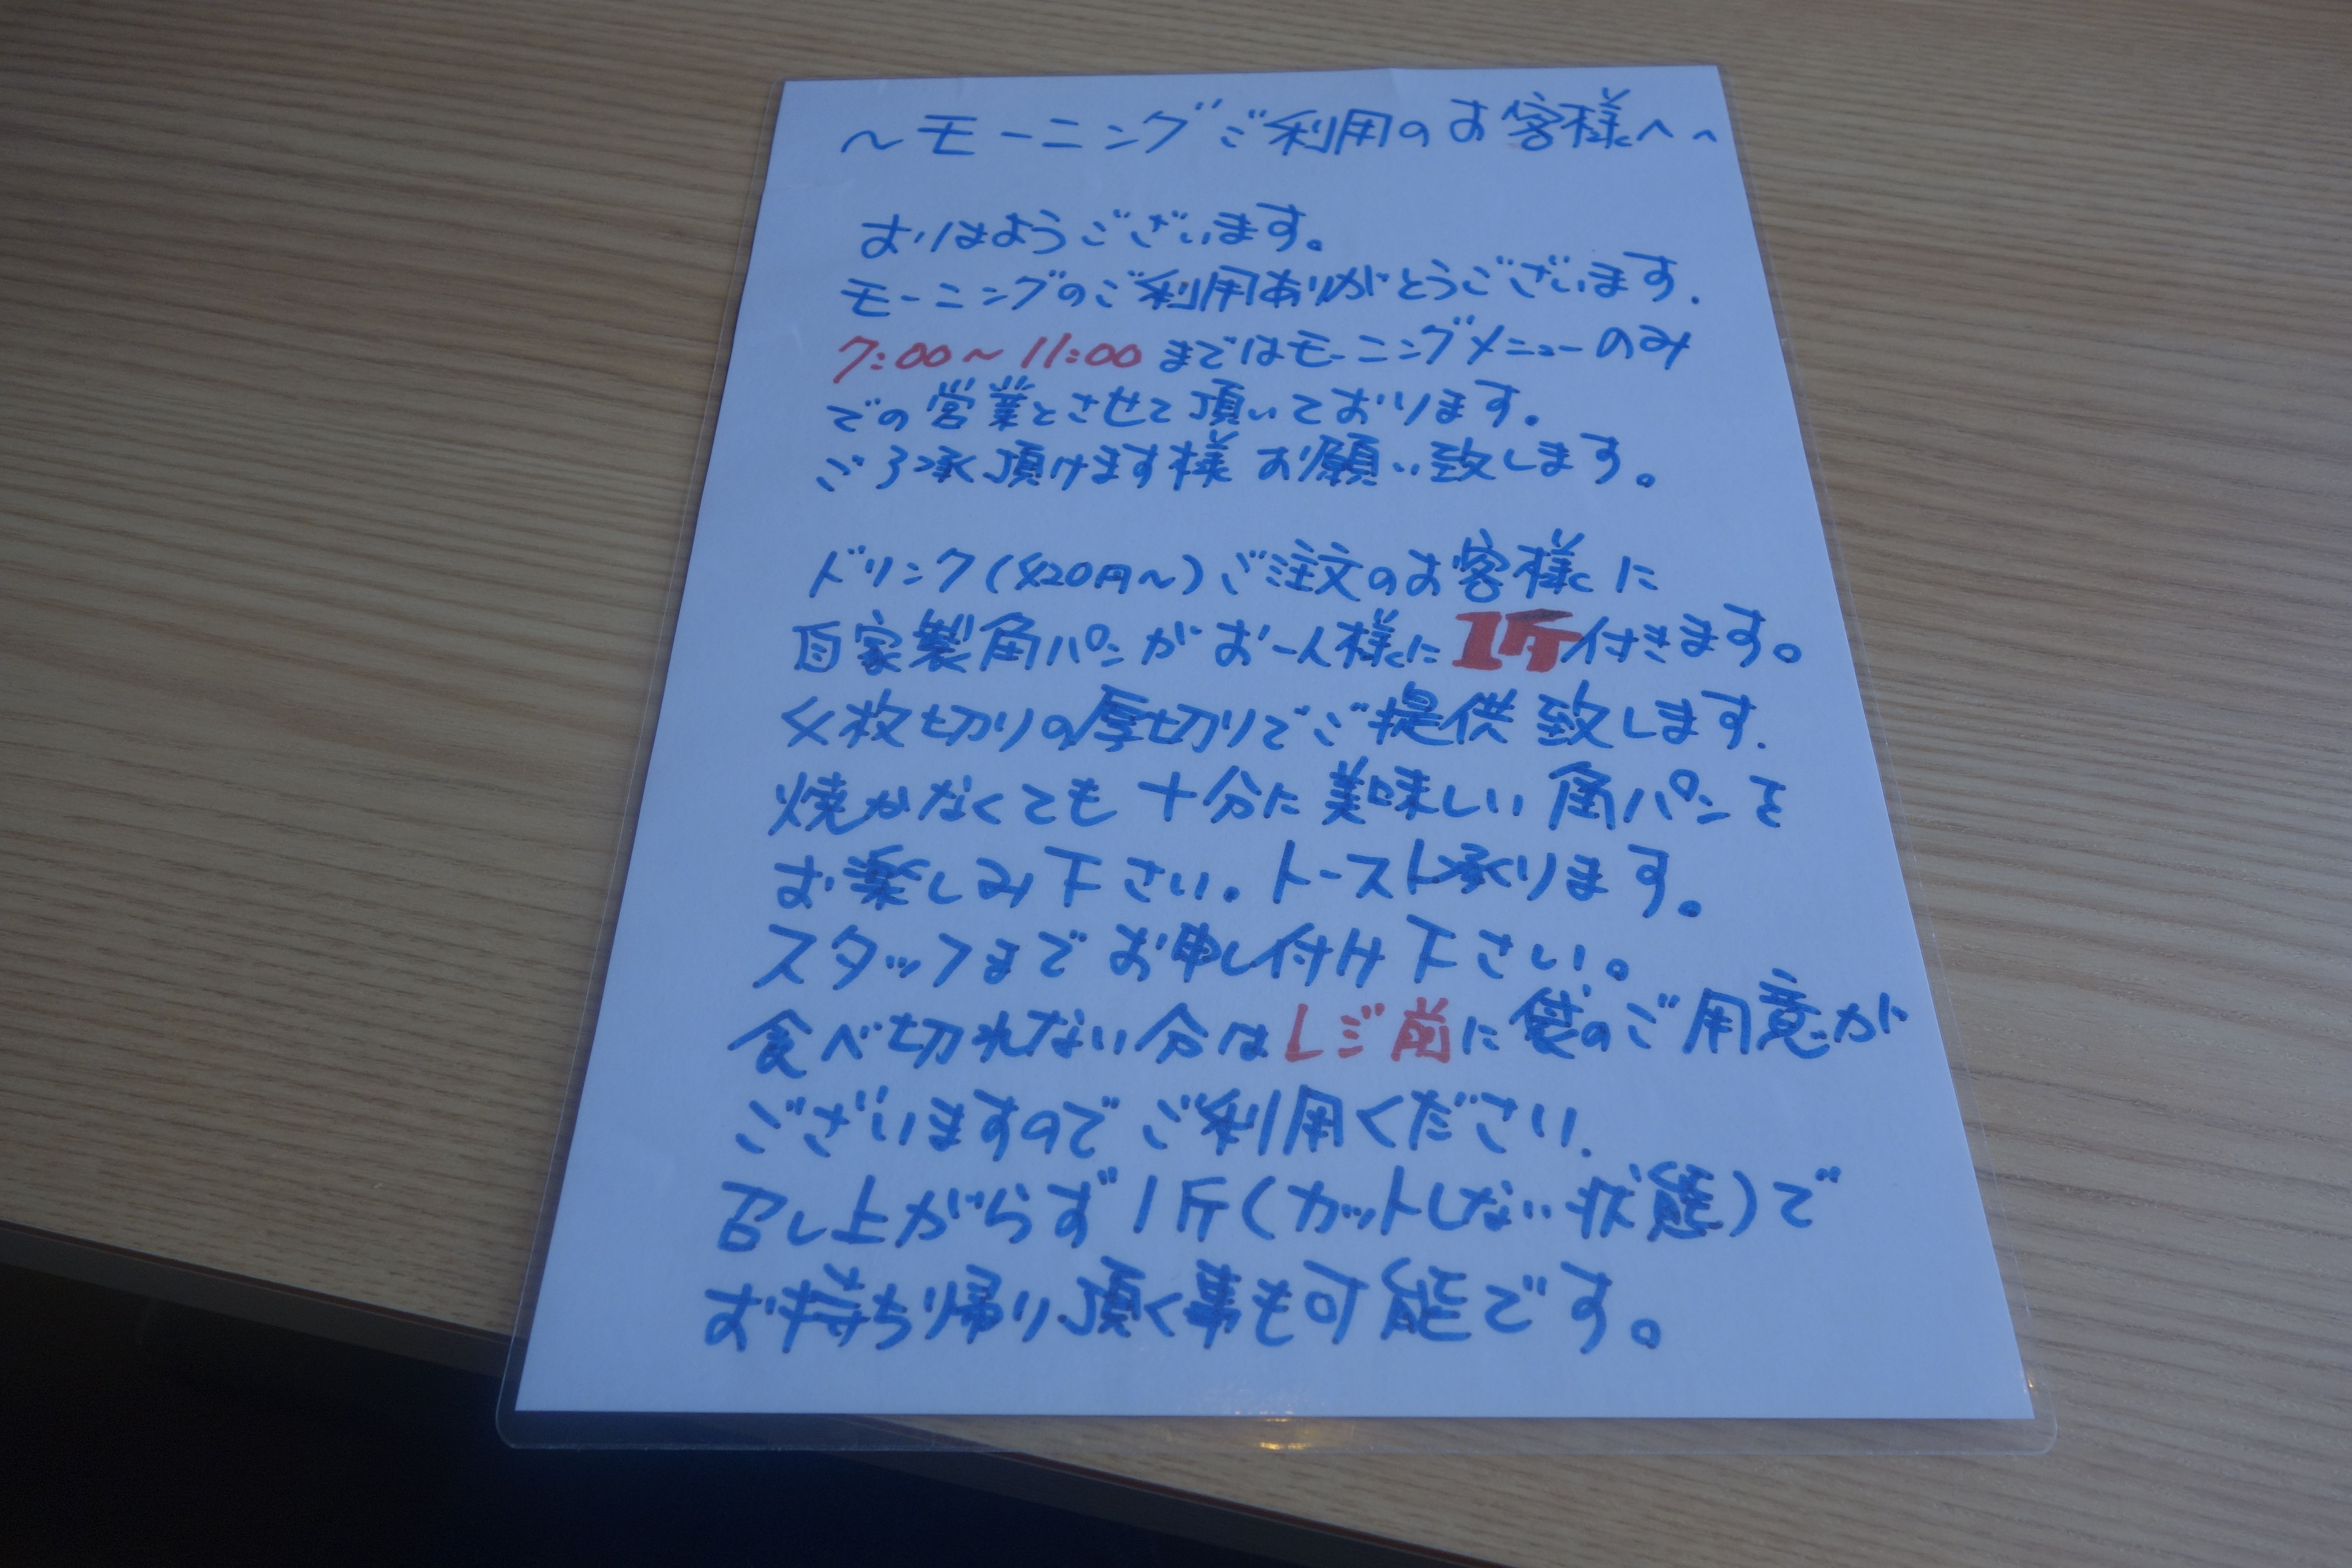 ～モーニングご利用のお客様へ～
おはようございます。
モーニングのご利用ありがとうございます.
7:00～11:00 まではモーニングメニューのみ
での営業とさせて頂いております.
ご了承頂けます様 お願い致します。
ドリンク(420円～)ご注文のお客様に
自家製角パンがお一人様に1斤付きます。
4枚切りの厚切りでご提供致します.
焼かなくても十分に美味しい角パンを
お楽しみ下さい。トースト承ります。
スタッフまでお申し付け下さい。
食べ切れない分はレジ前に袋のご用意が
ございますのでご利用ください.
召し上がらず1斤(カットしない状態)で
お持ち帰り頂く事も可能です。